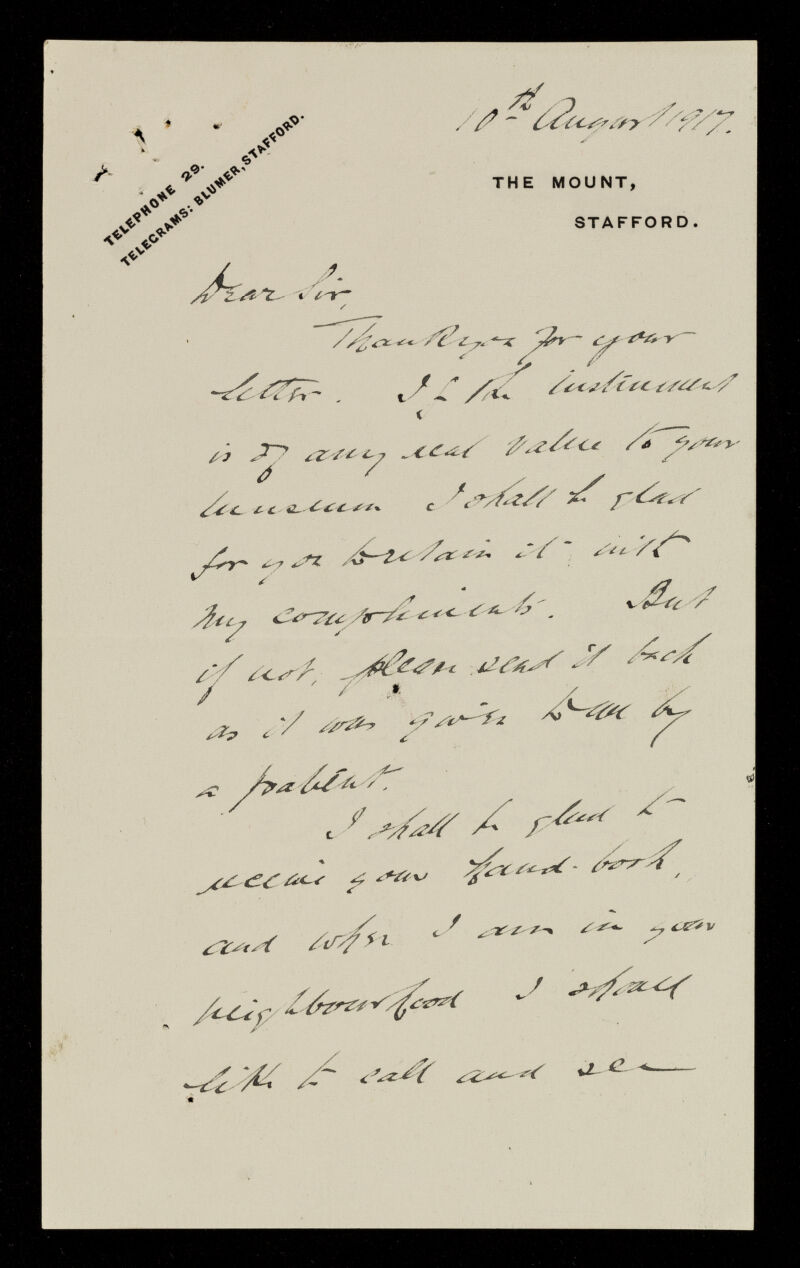 10th August 1917.
TELEPHONE 29.
TELEGRAMS: BLUMER, STAFFORD.
THE MOUNT,
STAFFORD.
Dear Sir,
Thank you for your
letter. If the instrument
is of any real value to your
museum I shall be glad
for you to retain it with
my compliments. But
if not, please send it back
as it was given to me by
a patient.
I shall be glad to
receive your hand-book,
and when I am in your
neighbourhood I shall
like to call and see